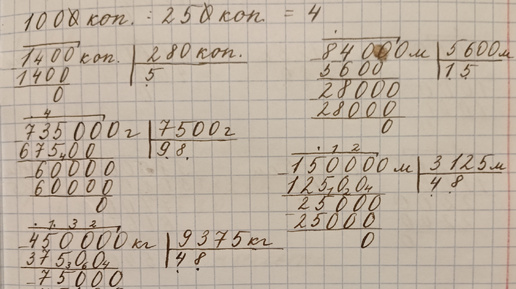 1000 коп. : 250 коп. = 4
1400 коп. | 280 коп.
1400 | 5
0
84000 м | 5600 м
5600 | 15
28000
28000
0
4
735000 г | 7500 г
67500 | 98
60000
60000
0
1 2
150000 м | 3125 м
12500 | 48
25000
25000
0
1 3 2
450000 кг | 9375 кг
37500 | 48
75000